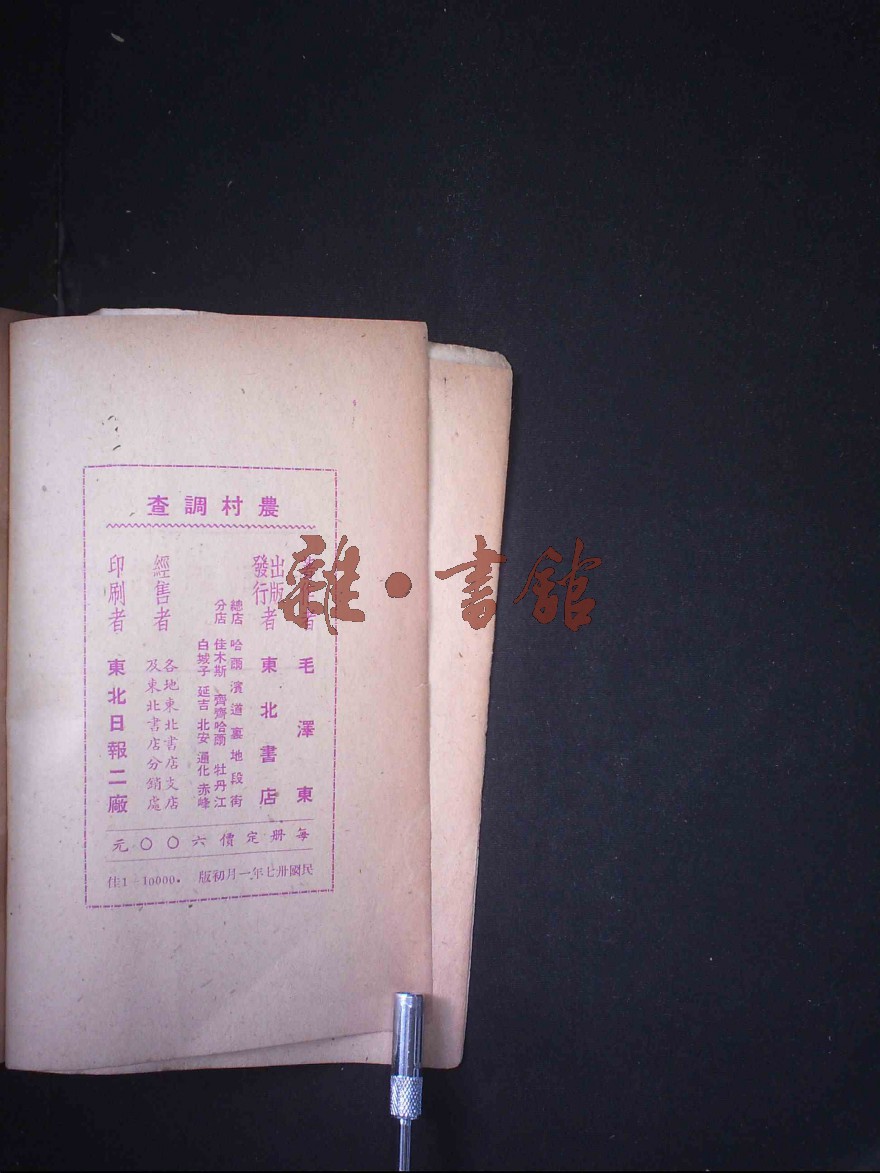 農村調查
者
毛澤東
出版者
發行
東北書店
總店 哈爾濱道裏地段街
分店 佳木斯 齊齊哈爾 牡丹江
白城子 延吉 北安 通化 赤峰
經售者
各地東北書店支店
及東北書店分銷處
印刷者
東北日報二廠
每冊定價六〇〇元
民國卅七年一月初版 佳1—10000.
雜·書館